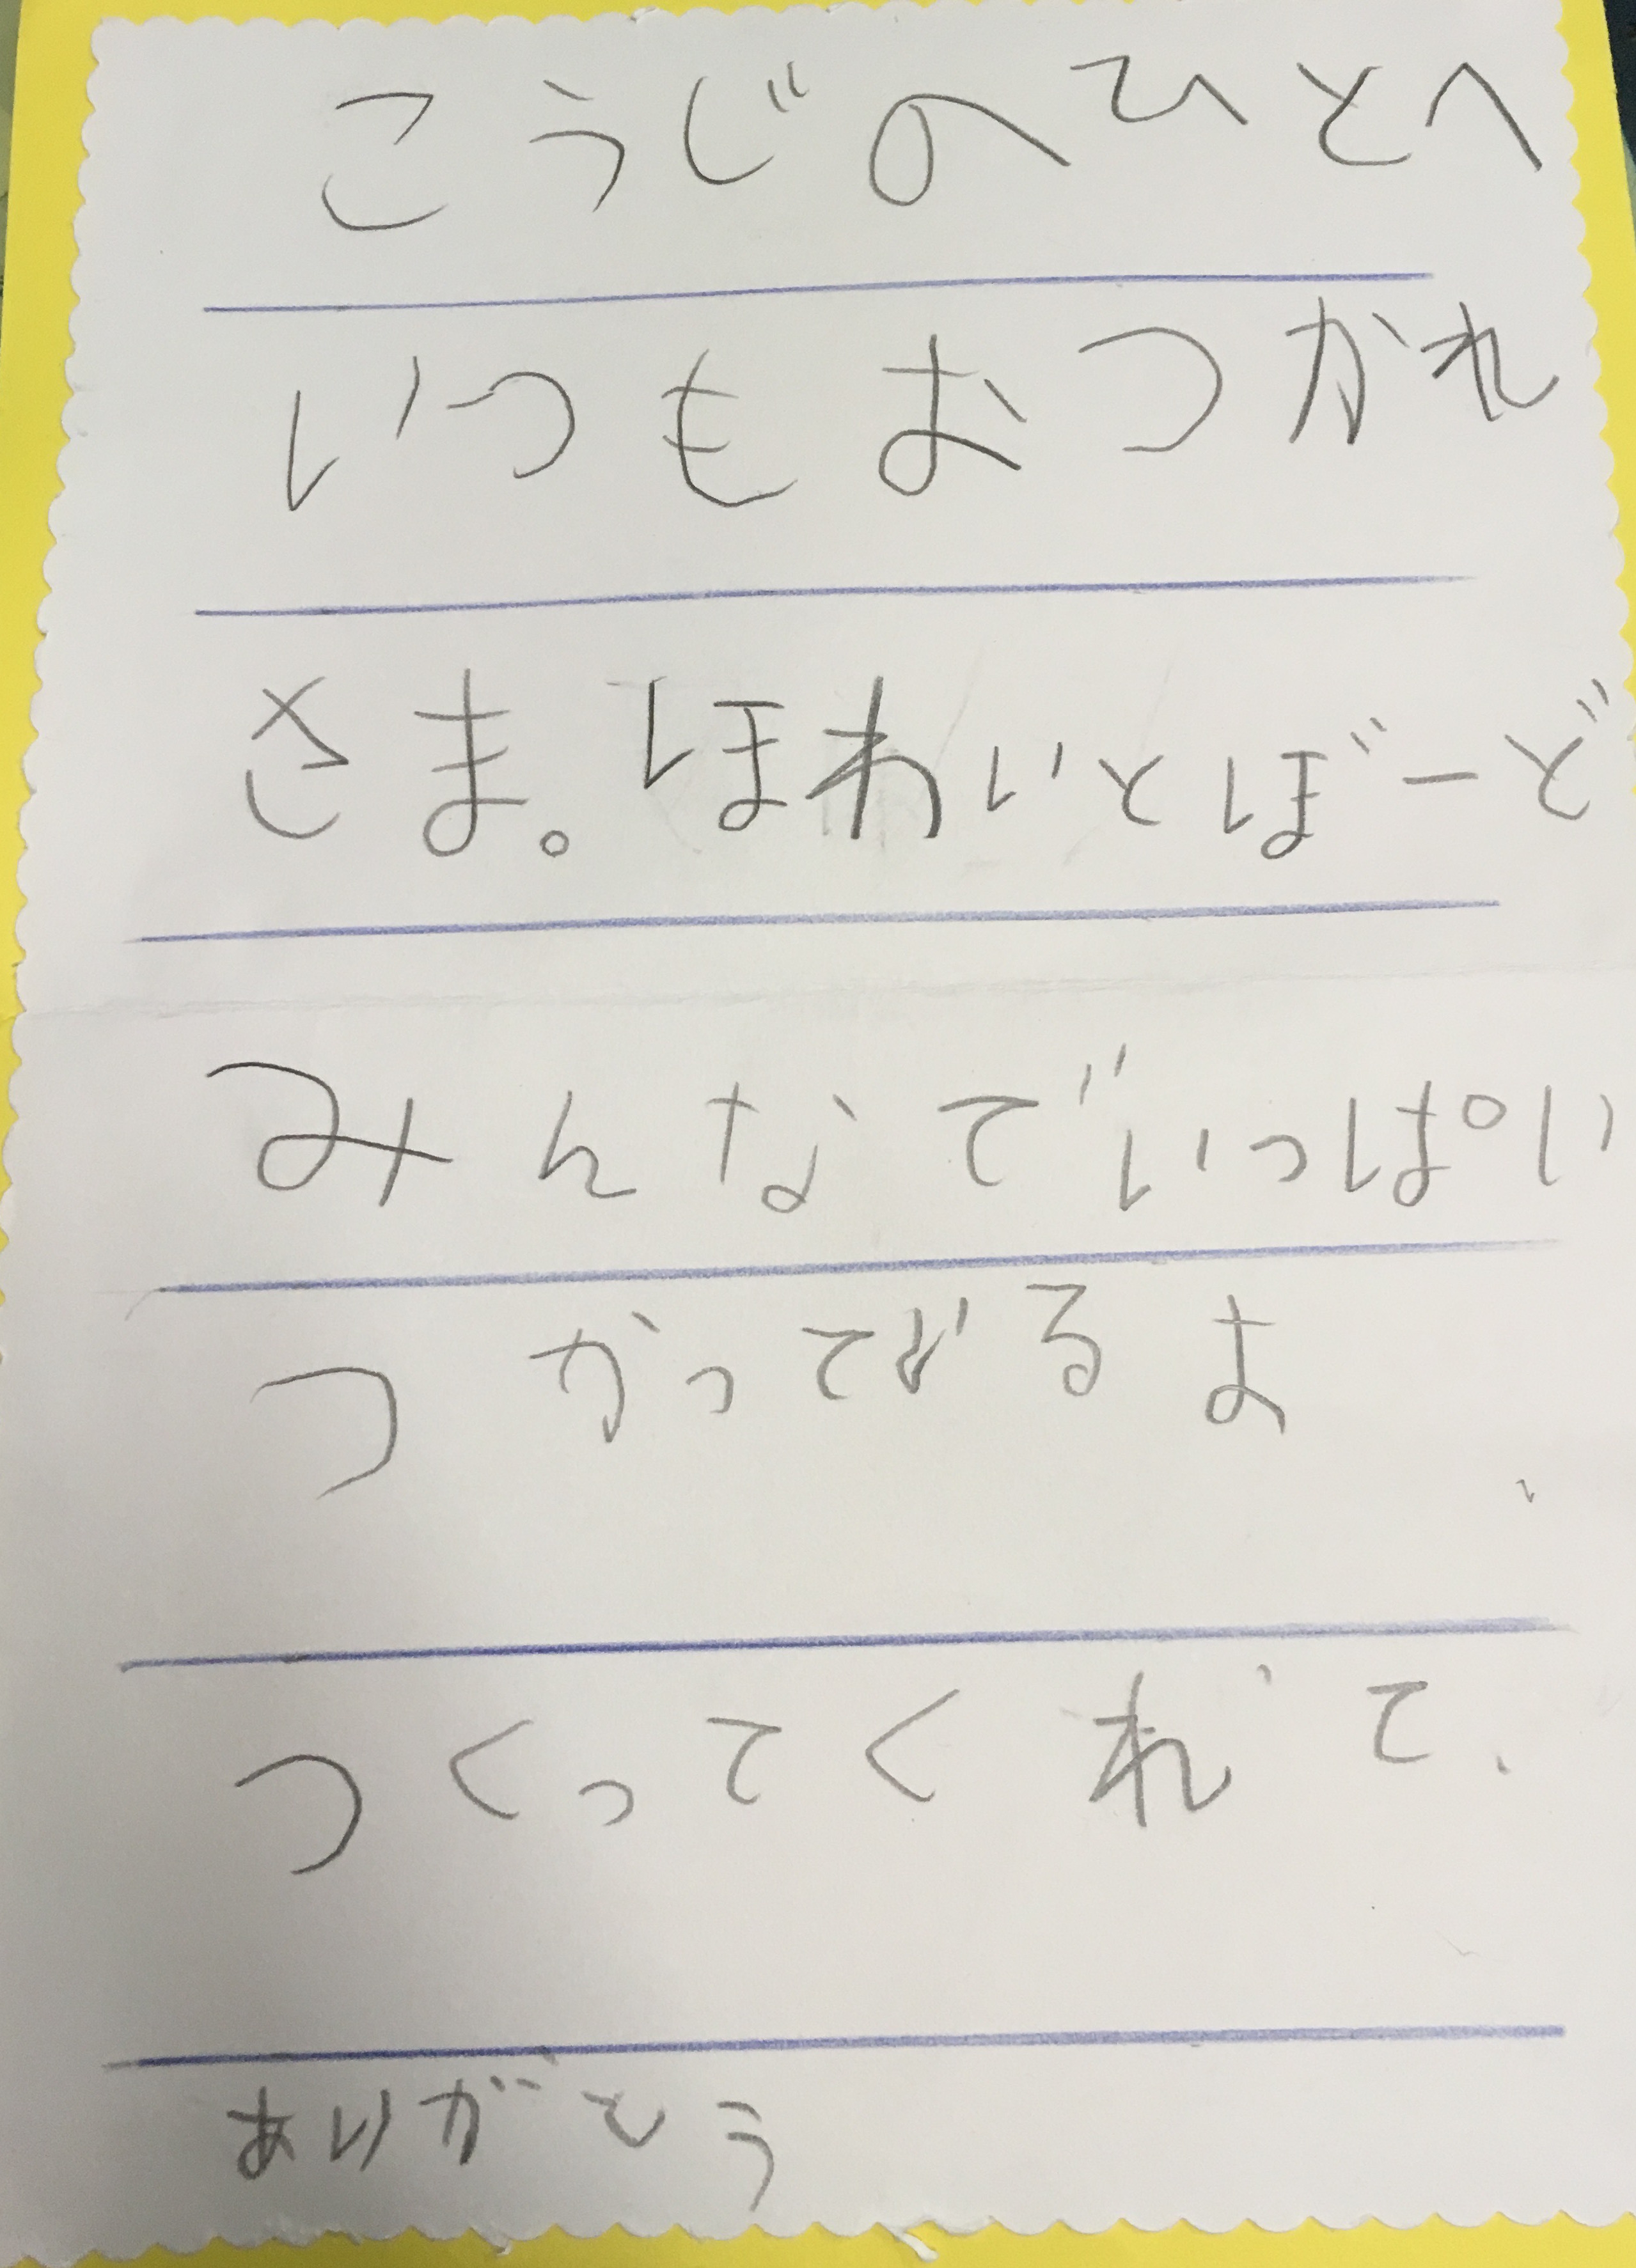 こうじのひとへ
いつもおつかれ
さま。ほわいとぼーど
みんなでいっぱい
つかっているよ
つくってくれて、
ありがとう